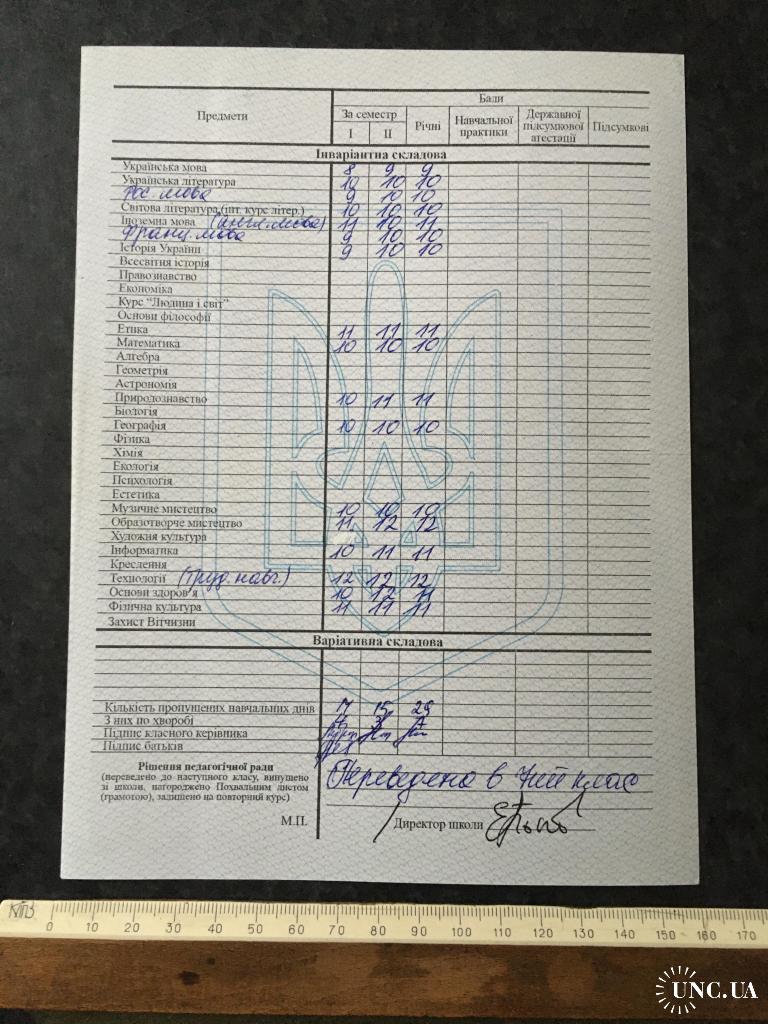 Предмети
Бали
За семестр
І ІІ
Річні
Навчальної практики
Державної підсумкової атестації
Підсумкові
Інваріантна складова
Українська мова 8 9 9
Українська література 10 10 10
Рос. мова 9 10 10
Світова література (інт. курс літер.) 10 10 10
Іноземна мова (англ. мова) 11 10 11
Франц. мова 9 10 10
Історія України 9 10 10
Всесвітня історія
Правознавство
Економіка
Курс "Людина і світ"
Основи філософії
Етика 11 11 11
Математика 10 10 10
Алгебра
Геометрія
Астрономія
Природознавство 10 11 11
Біологія
Географія 10 10 10
Фізика
Хімія
Екологія
Психологія
Естетика
Музичне мистецтво 10 10 10
Образотворче мистецтво 11 12 12
Художня культура
Інформатика 10 11 11
Креслення
Технології (труд. навч.) 12 12 12
Основи здоров'я 10 12 11
Фізична культура 11 11 11
Захист Вітчизни
Варіативна складова
Кількість пропущених навчальних днів 15 29
З них по хворобі
Підпис класного керівника
Підпис батьків
Рішення педагогічної ради
(переведено до наступного класу, випущено
зі школи, нагороджено Похвальним листом
(грамотою), залишено на повторний курс)
Переведено в 7ий клас
М.П.
Директор школи
0 10 20 30 40 50 60 70 80 90 100 110 120 130 140 150 160 170
UNC.UA